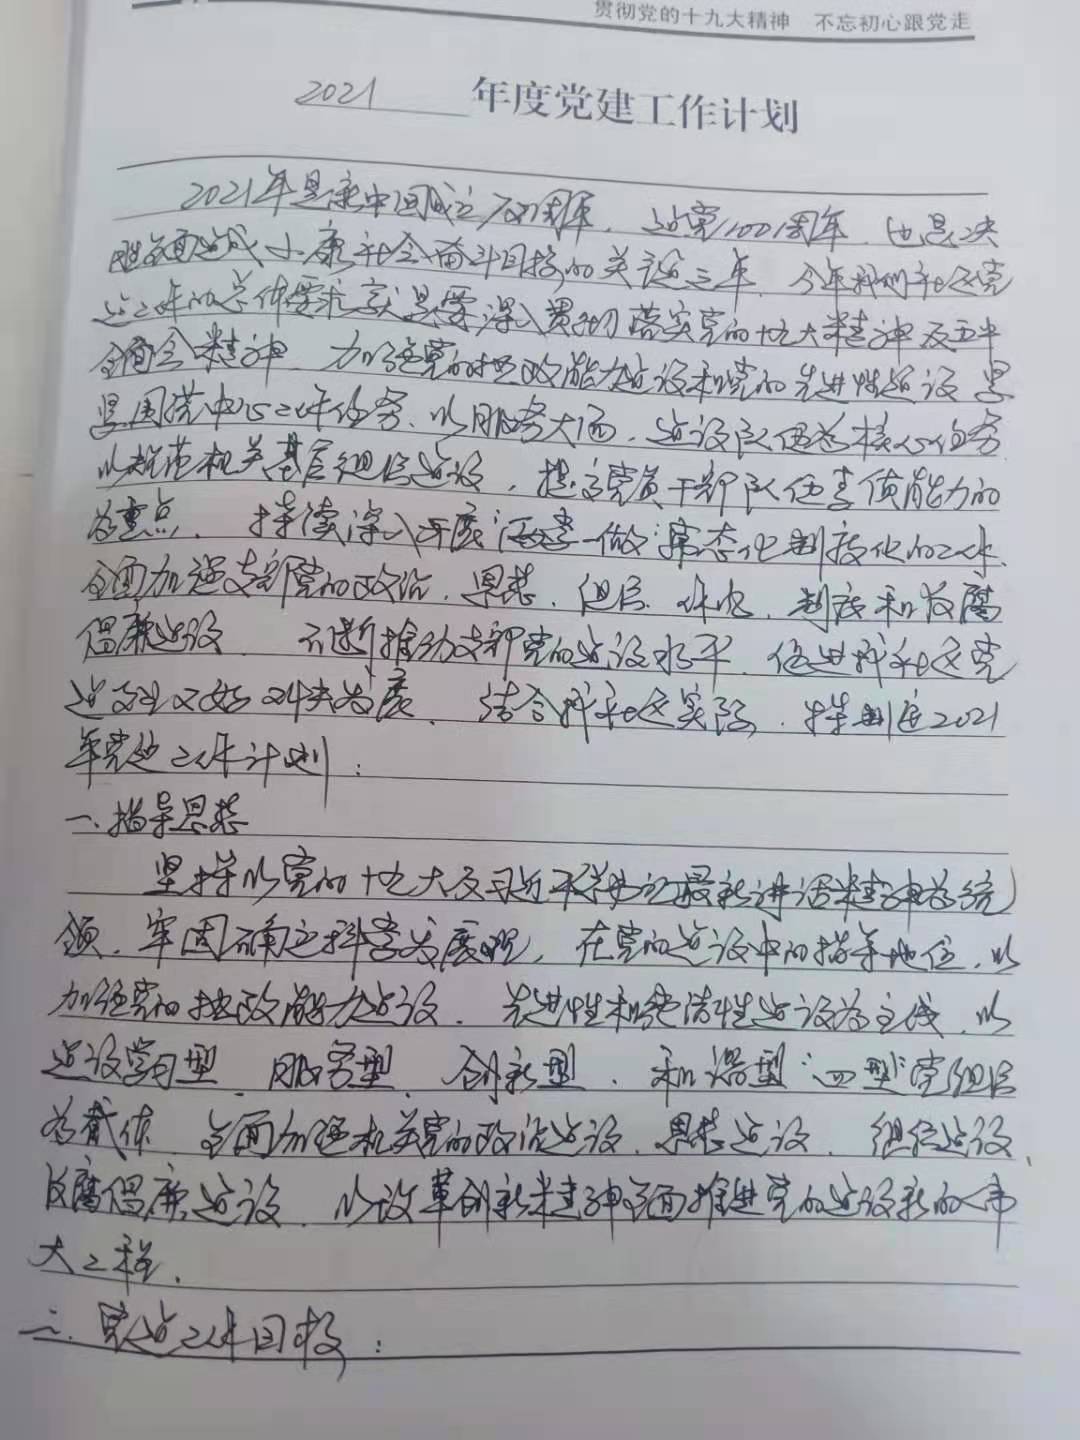 贯彻党的十九大精神 不忘初心跟党走
2021 年度党建工作计划
2021年是新中国成立 周年,建党100周年,也是决
胜全面建成小康社会奋斗目标的关键之年,今年我们社区党
建工作的总体要求就是要深入贯彻落实党的十九大精神及五中
全会精神,加强党的执政能力建设和党的先进性建设,紧
紧围绕中心工作任务,以服务大局,建设队伍为核心任务,
以规范机关基层组织建设,提高党员干部队伍素质能力的
为重点,持续深入开展"两学一做"常态化制度化的工作,
全面加强支部党的政治、思想、组织、作风、制度和反腐
倡廉建设,不断推动支部党的建设水平,促进我社区党
建又好又 发展,结合我社区实际,特制定2021
年党建工作计划:
一、指导思想
坚持以党的十九大及习近平总书记最新讲话精神为统
领,牢固确立科学发展观,在党的建设中的指导地位,以
加强党的执政能力建设,先进性和纯洁性建设为主线,以
建设学习型、服务型、创新型、和谐型"四型"党组织
为载体,全面加强机关党的政治建设、思想建设、组织建设、
反腐倡廉建设,以改革创新精神全面推进党的建设新的伟
大工程。
二、党建工作目标: